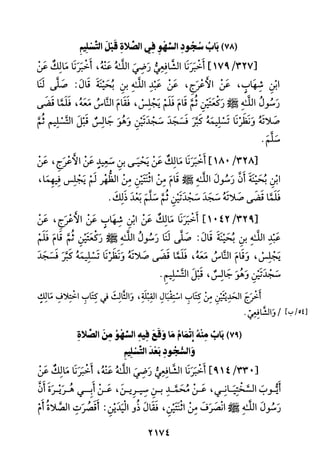 (٧٨) بَابُ سُجُودِ السَّهْوِ فِي الصَّلَاةِ قَبْلَ التَّسْلِيمِ
[٣٢٧/ ١٧٩] أَخْبَرَنَا الشَّافِعِيُّ رَضِيَ اللَّهُ عَنْهُ، أَخْبَرَنَا مَالِكٌ عَنْ
ابْنِ شِهَابٍ، عَنِ الْأَعْرَجِ، عَنْ عَبْدِ اللَّهِ بنِ بُحَيْنَةَ قَالَ: صَلَّى لَنَا
رَسُولُ اللَّهِ ﷺ رَكْعَتَيْنِ ثُمَّ قَامَ فَلَمْ يَجْلِسْ، فَقَامَ النَّاسُ مَعَهُ، فَلَمَّا قَضَى
صَلَاتَهُ وَنَظَرْنَا تَسْلِيمَهُ كَبَّرَ فَسَجَدَ سَجْدَتَيْنِ وَهُوَ جَالِسٌ قَبْلَ التَّسْلِيمِ ثُمَّ
سَلَّمَ.
[٣٢٨/ ١٨٠] أَخْبَرَنَا مَالِكٌ عَنْ يَحْيَـى بنِ سَعِيدٍ عَنِ الْأَعْرَجِ، عَنْ،
ابْنِ بُحَيْنَةَ أَنَّ رَسُولَ اللَّهِ ﷺ قَامَ مِنِ اثْنَتَيْنِ مِنَ الظُّهْرِ لَمْ يَجْلِسْ فِيهِمَا،
فَلَمَّا قَضَى صَلَاتَهُ سَجَدَ سَجْدَتَيْنِ ثُمَّ سَلَّمَ بَعْدَ ذَلِكَ.
[٣٢٩/ ١٠٤٢] أَخْبَرَنَا مَالِكٌ عَنْ ابْنِ شِهَابٍ عَنِ الْأَعْرَجِ، عَنْ
عَبْدِ اللَّهِ بنِ بُحَيْنَةَ قَالَ: صَلَّى لَنَا رَسُولُ اللَّهِ ﷺ رَكْعَتَيْنِ ثُمَّ قَامَ فَلَمْ
يَجْلِسْ، وَقَامَ النَّاسُ مَعَهُ، فَلَمَّا قَضَى صَلَاتَهُ وَنَظَرْنَا تَسْلِيمَهُ كَبَّرَ فَسَجَدَ
سَجْدَتَيْنِ وَهُوَ جَالِسٌ، قَبْلَ التَّسْلِيمِ.
أَخْرَجَ الْحَدِيثَيْنِ مِنْ كِتَابِ اسْتِقْبَالِ الْقِبْلَةِ، وَالثَّالِثَ في كِتَابِ اخْتِلَافِ مَالِكٍ
[٥٤/ب] / وَالشَّافِعِيِّ.
(٧٩) بَابٌ مِنْهُ إِتْمَامُ مَا وَقَعَ فِيهِ السَّهْوُ مِنَ الصَّلَاةِ
وَالسُّجُودُ بَعْدَ التَّسْلِيمِ
[٣٣٠/ ٩١٤] أَخْبَرَنَا الشَّافِعِيُّ رَضِيَ اللَّهُ عَنْهُ، أَخْبَرَنَا مَالِكٌ عَنْ
أَيُّوبَ السَّخْتِيَـانِـي، عَـنْ مُحَـمَّـدِ بـنِ سِـيـرِيـنَ، عَـنْ أَبِـي هُـرَيْـرَةَ أَنَّ
رَسُولَ اللَّهِ ﷺ انْصَرَفَ مِنِ اثْنَتَيْنِ، فَقَالَ ذُو الْيَدَيْنِ: أَقَصُرَتِ الصَّلَاةُ أَمْ
٢١٧٤